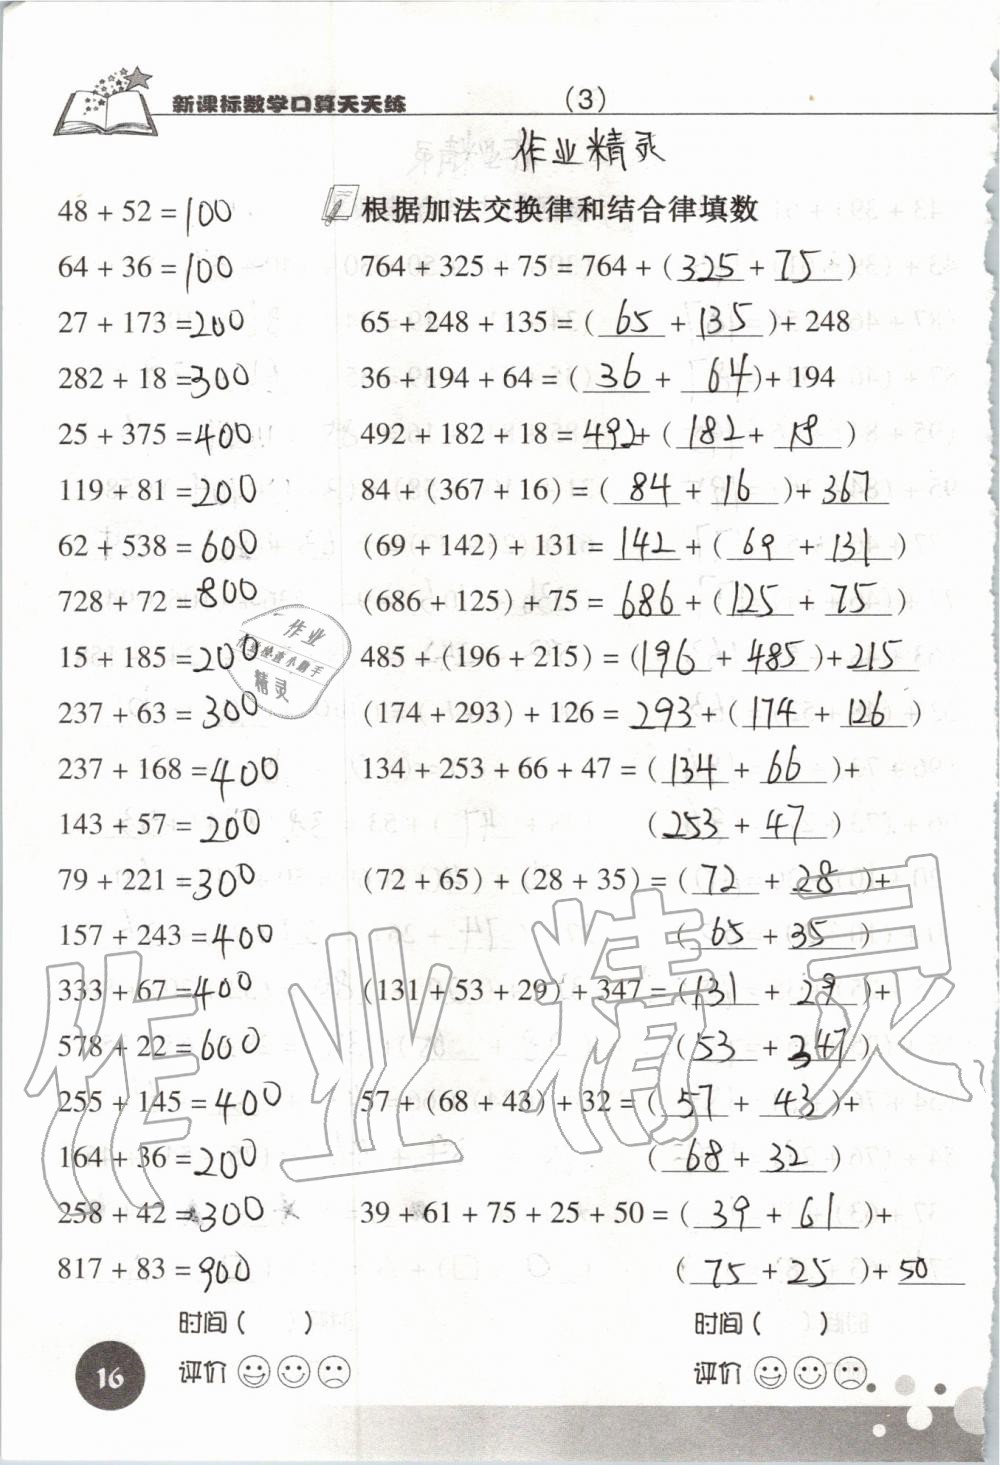 新课标数学口算天天练
(3)
作业精灵
48 + 52 = 100
64 + 36 = 100
27 + 173 = 200
282 + 18 = 300
25 + 375 = 400
119 + 81 = 200
62 + 538 = 600
728 + 72 = 800
15 + 185 = 200
237 + 63 = 300
237 + 168 = 400
143 + 57 = 200
79 + 221 = 300
157 + 243 = 400
333 + 67 = 400
578 + 22 = 600
255 + 145 = 400
164 + 36 = 200
258 + 42 = 300
817 + 83 = 900
时间( )
评价
根据加法交换律和结合律填数
764 + 325 + 75 = 764 + ( 325 + 75 )
65 + 248 + 135 = ( 65 + 135 ) + 248
36 + 194 + 64 = ( 36 + 64 ) + 194
492 + 182 + 18 = 492 + ( 182 + 18 )
84 + (367 + 16) = ( 84 + 16 ) + 367
(69 + 142) + 131 = 142 + ( 69 + 131 )
(686 + 125) + 75 = 686 + ( 125 + 75 )
485 + (196 + 215) = ( 196 + 485 ) + 215
(174 + 293) + 126 = 293 + ( 174 + 126 )
134 + 253 + 66 + 47 = ( 134 + 66 ) +
( 253 + 47 )
(72 + 65) + (28 + 35) = ( 72 + 28 ) +
( 65 + 35 )
(131 + 53 + 29) + 347 = ( 131 + 29 ) +
( 53 + 347 )
57 + (68 + 43) + 32 = ( 57 + 43 ) +
( 68 + 32 )
39 + 61 + 75 + 25 + 50 = ( 39 + 61 ) +
( 75 + 25 ) + 50
时间( )
评价
16
作业
精灵
作业精灵